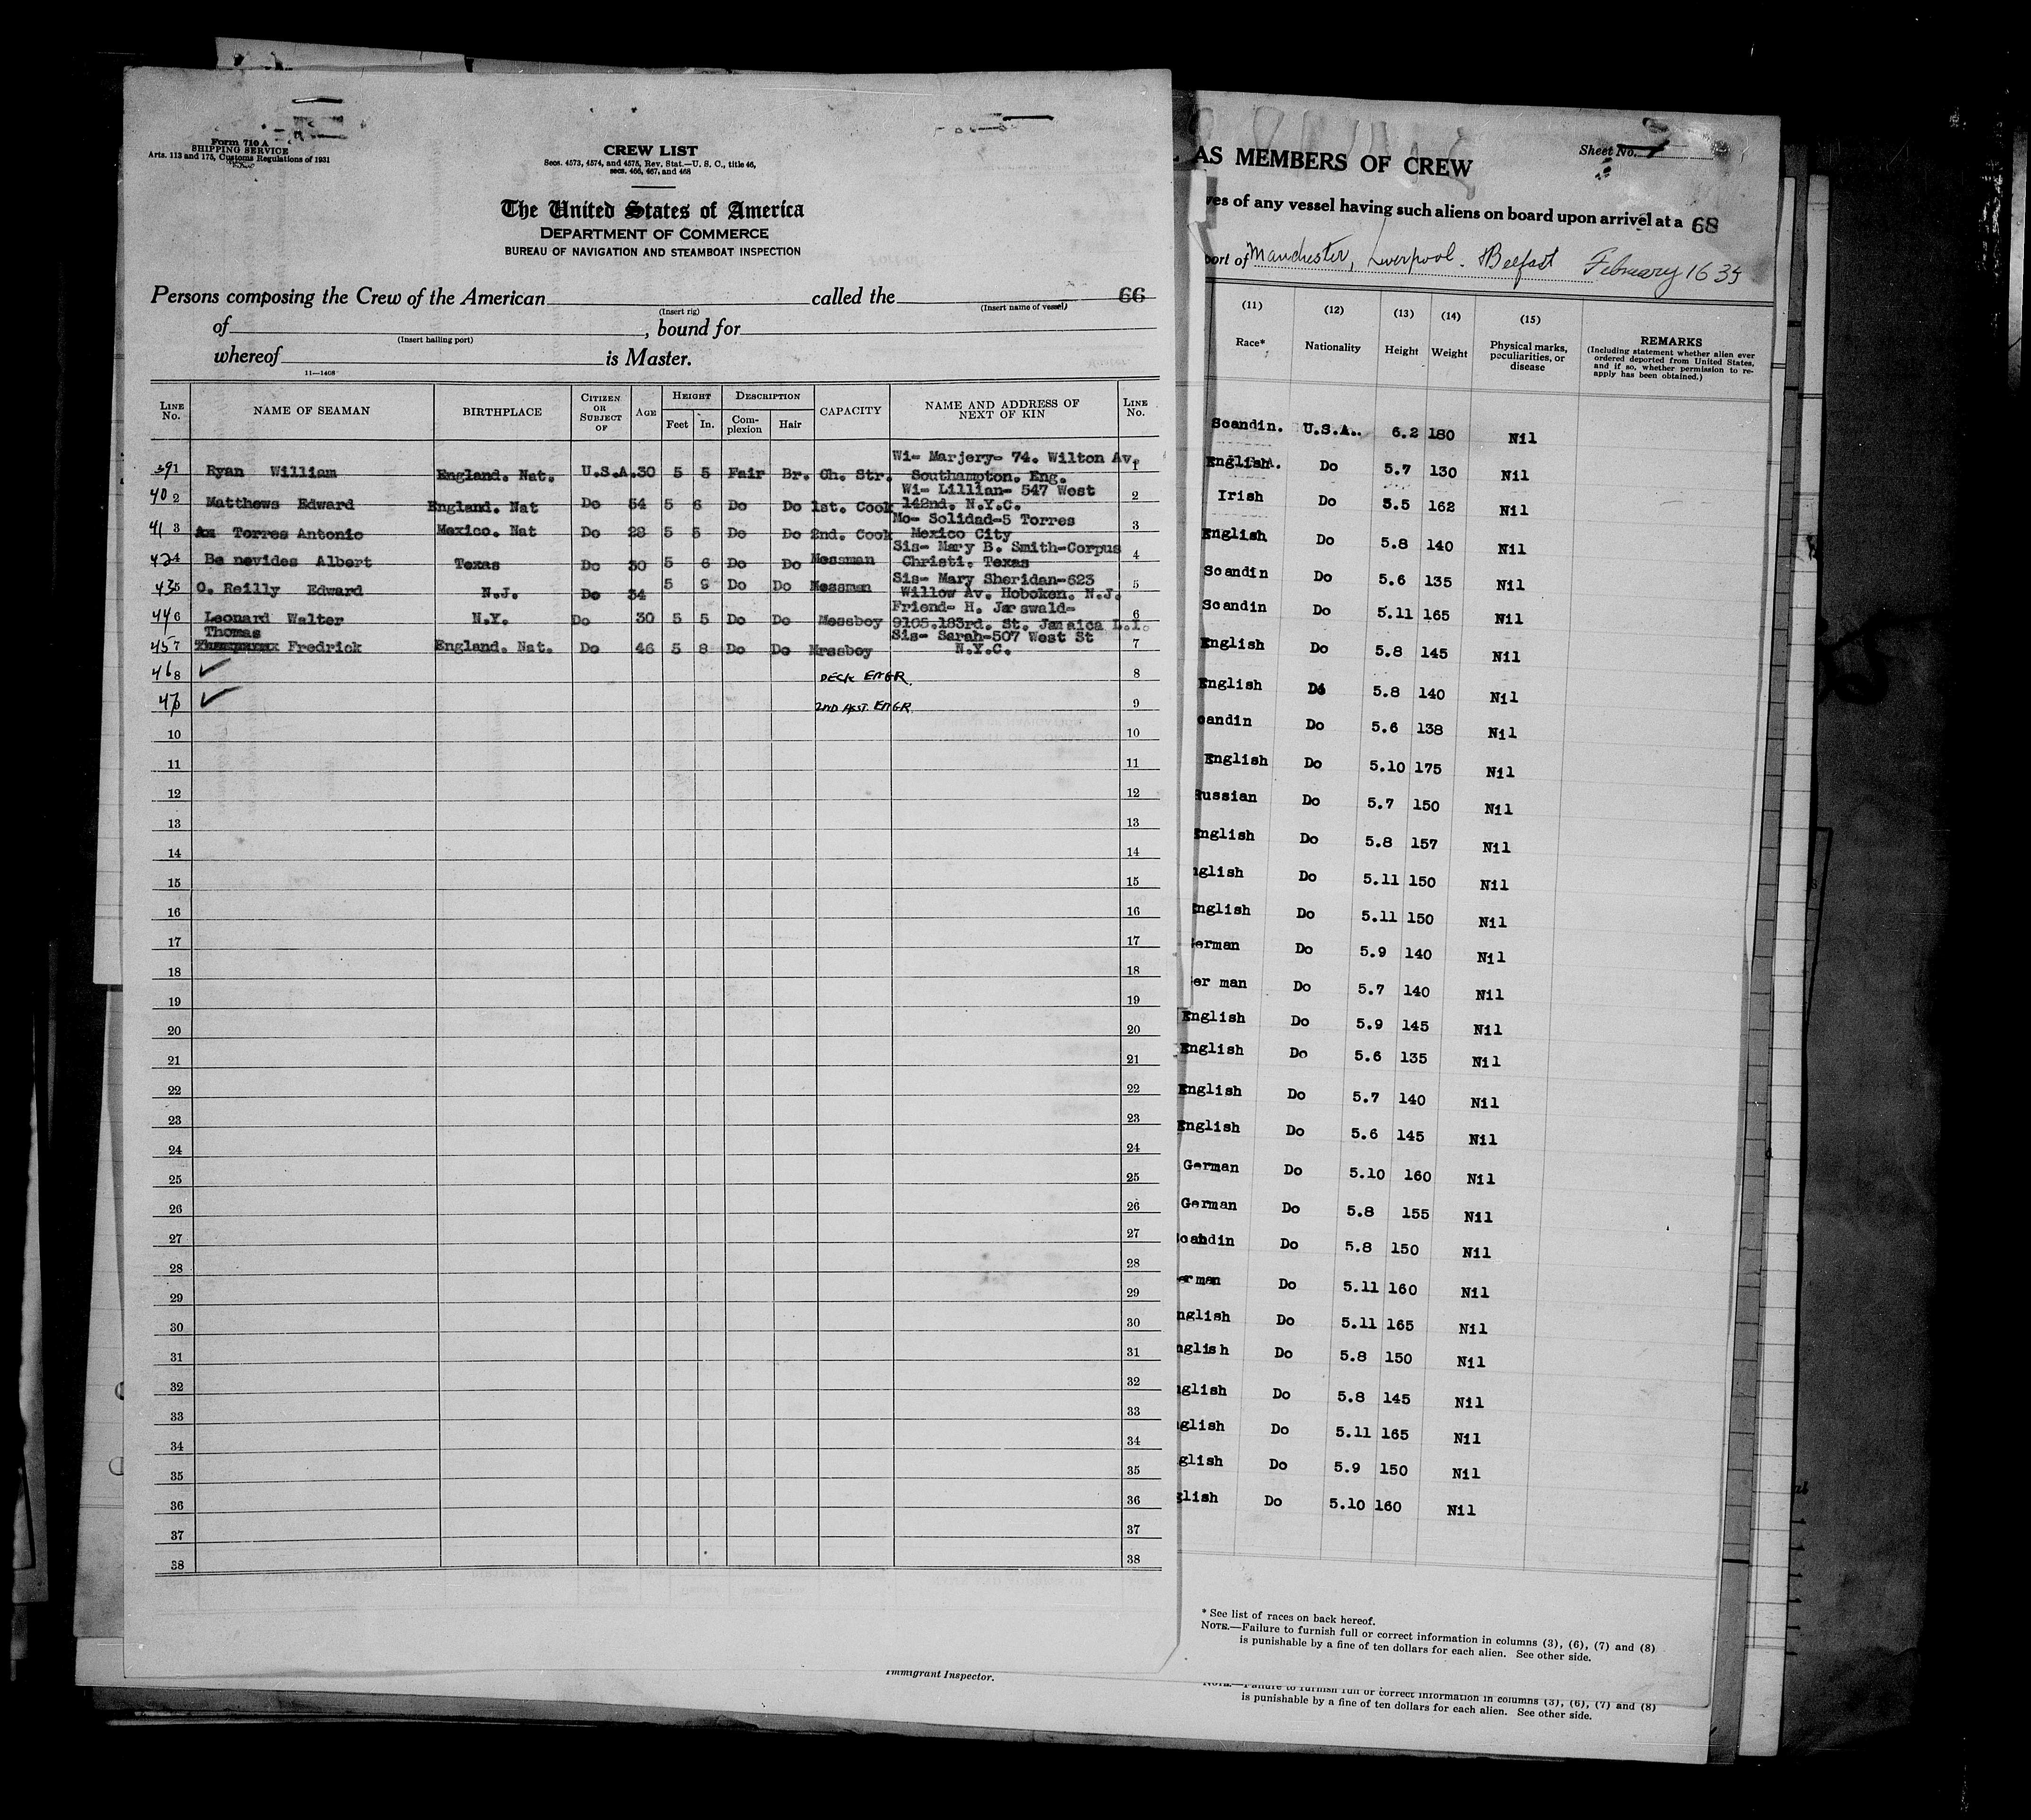 Form 710 A
SHIPPING SERVICE
Arts. 113 and 175, Customs Regulations of 1931
CREW LIST
Secs. 4573, 4574, and 4575, Rev. Stat.—U. S. C., title 46,
secs. 466, 467, and 468
The United States of America
DEPARTMENT OF COMMERCE
BUREAU OF NAVIGATION AND STEAMBOAT INSPECTION
Persons composing the Crew of the American called the 66
(Insert rig) (Insert name of vessel)
of , bound for
(Insert hailing port)
whereof is Master.
11—1408
LINE No. NAME OF SEAMAN BIRTHPLACE CITIZEN OR SUBJECT OF AGE HEIGHT Feet In. DESCRIPTION Complexion Hair CAPACITY NAME AND ADDRESS OF NEXT OF KIN LINE No.
Wi- Marjery- 74. Wilton Av.
39 1 Ryan William England. Nat. U.S.A. 30 5 5 Fair Br. Ch. Str. Southampton. Eng. 1
Wi- Lillian- 547 West
40 2 Matthews Edward England. Nat Do 54 5 6 Do Do 1st. Cook 142nd. N.Y.C. 2
Mo- Solidad-5 Torres
41 3 Torres Antonio Mexico. Nat Do 28 5 5 Do Do 2nd. Cook Mexico City 3
Sis- Mary B. Smith-Corpus
42 4 Be nevides Albert Texas Do 30 5 6 Do Do Messman Christi. Texas 4
Sis- Mary Sheridan-623
43 5 O. Reilly Edward N.J. Do 34 5 9 Do Do Messman Willow Av. Hoboken. N.J. 5
Friend- H. Jarswald-
44 6 Leonard Walter N.Y. Do 30 5 5 Do Do Messboy 9105.183rd. St. Jamaica L.I. 6
Thomas Sis- Sarah-507 West St
45 7 Fredrick England. Nat. Do 46 5 8 Do Do Mrssboy N.Y.C. 7
46 8 ✓ DECK ENGR. 8
47 ✓ 2ND ASST. ENGR 9
10 10
11 11
12 12
13 13
14 14
15 15
16 16
17 17
18 18
19 19
20 20
21 21
22 22
23 23
24 24
25 25
26 26
27 27
28 28
29 29
30 30
31 31
32 32
33 33
34 34
35 35
36 36
37 37
38 38
Immigrant Inspector.
AS MEMBERS OF CREW
Sheet No.
ves of any vessel having such aliens on board upon arrival at a 68
port of Manchester, Liverpool. Belfast February 16 35
(11) (12) (13) (14) (15)
Race* Nationality Height Weight Physical marks, peculiarities, or disease
REMARKS
(Including statement whether alien ever ordered deported from United States, and if so, whether permission to reapply has been obtained.)
Scandin. U.S.A.. 6.2 180 Nil
English. Do 5.7 130 Nil
Irish Do 5.5 162 Nil
English Do 5.8 140 Nil
Scandin Do 5.6 135 Nil
Scandin Do 5.11 165 Nil
English Do 5.8 145 Nil
English Do 5.8 140 Nil
candin Do 5.6 138 Nil
English Do 5.10 175 Nil
Russian Do 5.7 150 Nil
English Do 5.8 157 Nil
nglish Do 5.11 150 Nil
English Do 5.11 150 Nil
erman Do 5.9 140 Nil
er man Do 5.7 140 Nil
English Do 5.9 145 Nil
English Do 5.6 135 Nil
English Do 5.7 140 Nil
English Do 5.6 145 Nil
German Do 5.10 160 Nil
German Do 5.8 155 Nil
Scandin Do 5.8 150 Nil
erman Do 5.11 160 Nil
nglish Do 5.11 165 Nil
nglish Do 5.8 150 Nil
nglish Do 5.8 145 Nil
glish Do 5.11 165 Nil
glish Do 5.9 150 Nil
glish Do 5.10 160 Nil
* See list of races on back hereof.
NOTE.—Failure to furnish full or correct information in columns (3), (6), (7) and (8)
is punishable by a fine of ten dollars for each alien. See other side.
NOTE.—Failure to furnish full or correct information in columns (3), (6), (7) and (8)
is punishable by a fine of ten dollars for each alien. See other side.